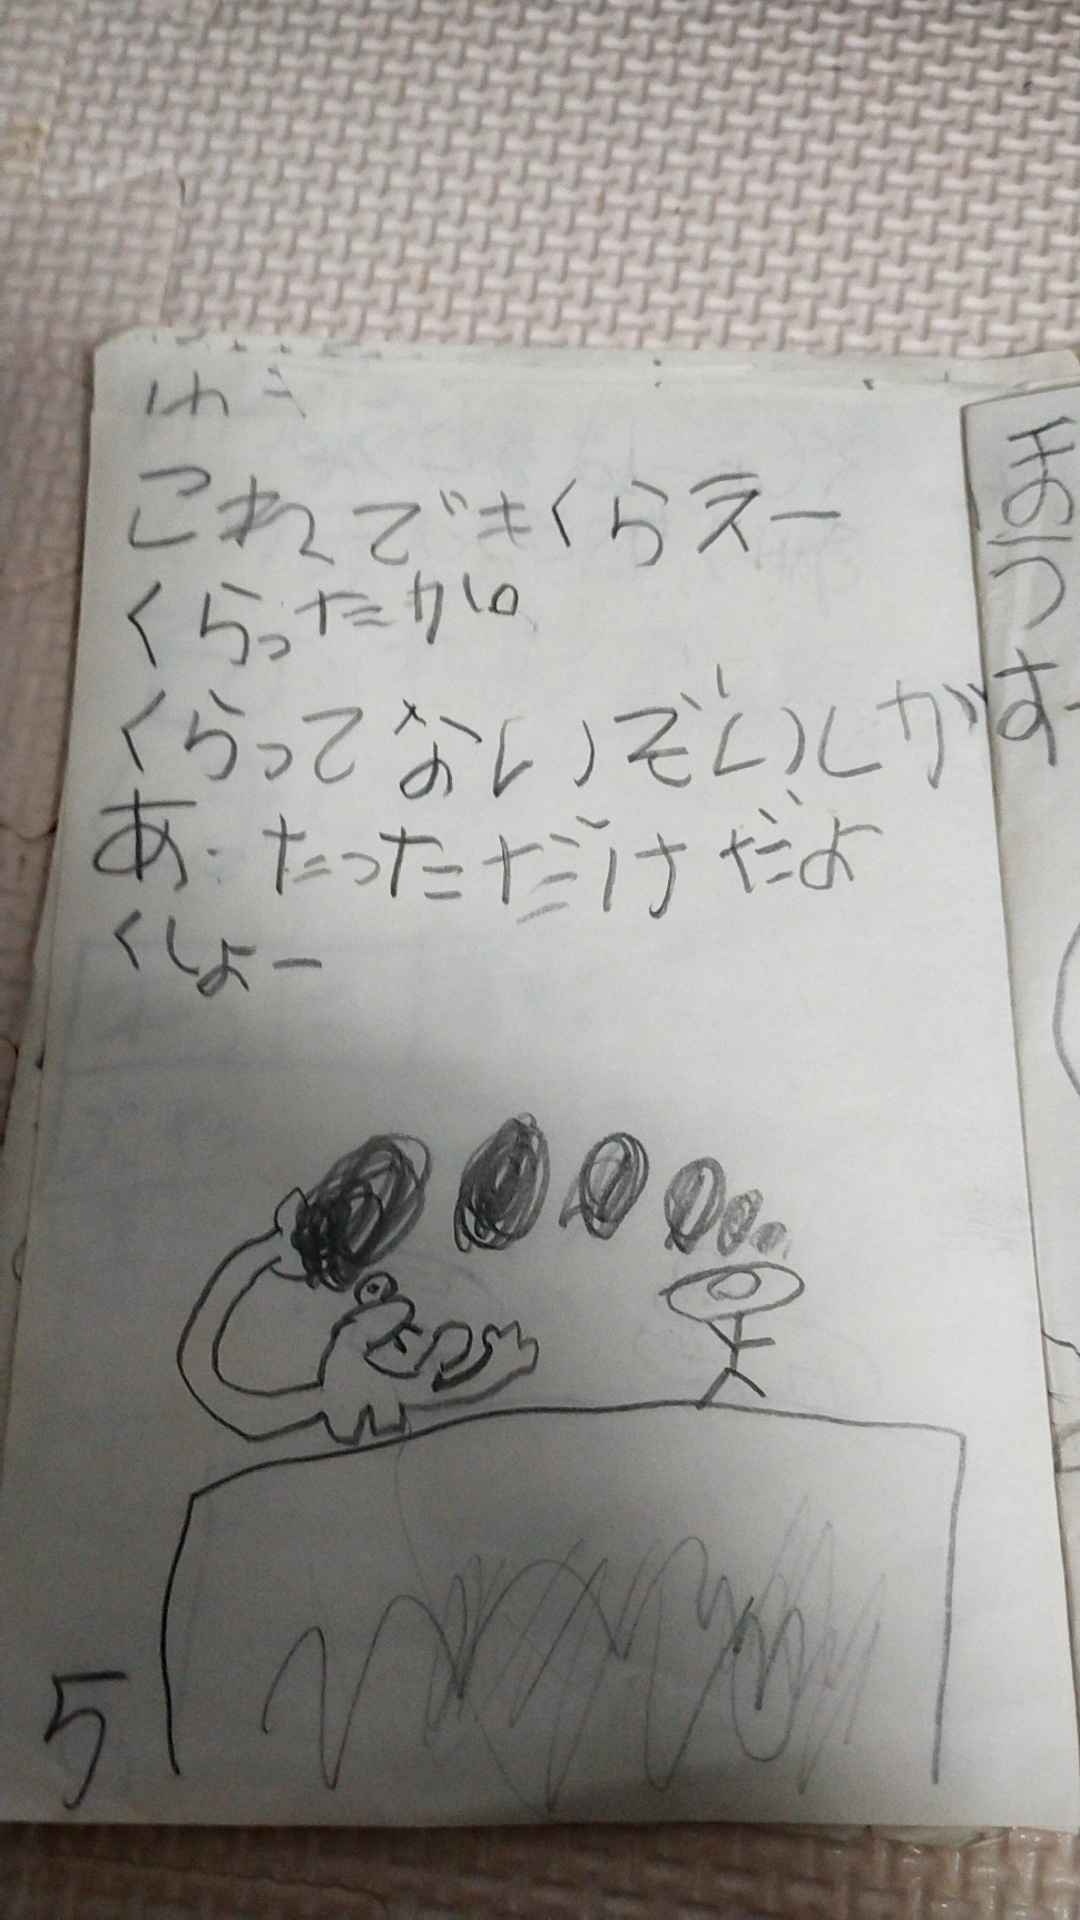 これでもくらえー
くらったか。
くらってないぞいしが
あたっただけだよ
くしょー
5